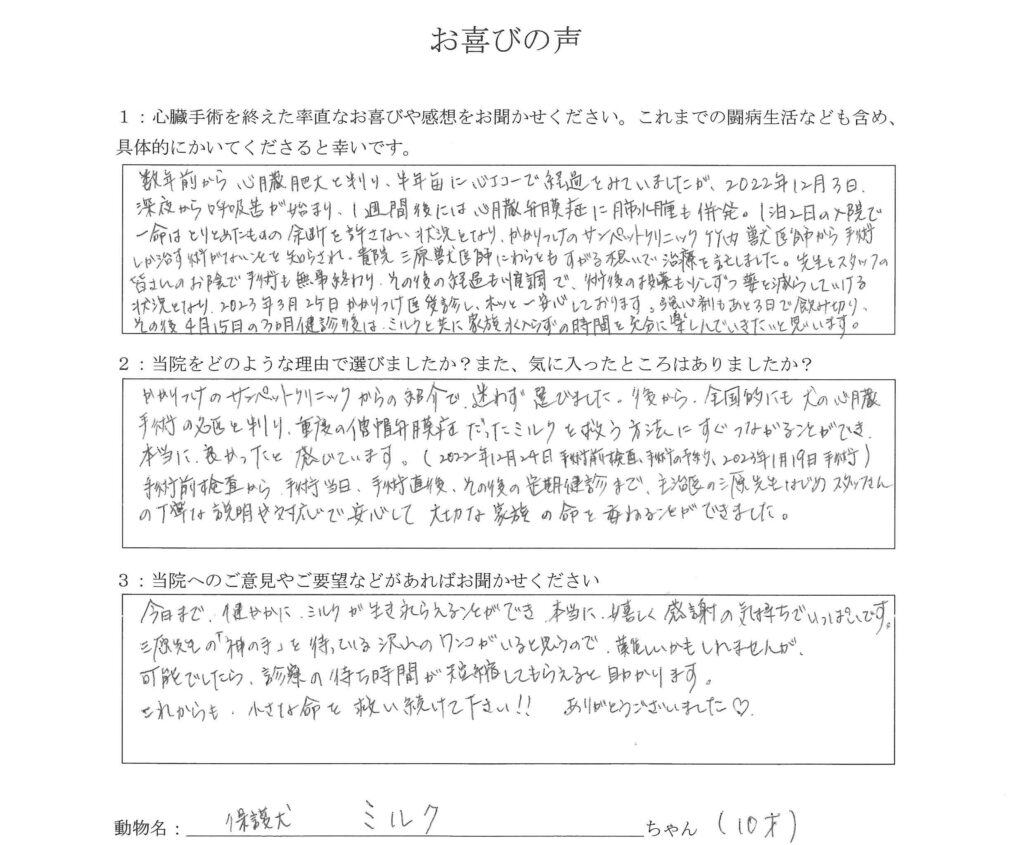 お喜びの声
1:心臓手術を終えた率直なお喜びや感想をお聞かせください。これまでの闘病生活なども含め、
具体的にかいてくださると幸いです。
数年前から心臓肥大と判り、半年毎に心エコーで経過をみていましたが、2022年12月3日、
深夜から呼吸苦が始まり、1週間後には心臓弁膜症に肺水腫も併発。1泊2日の入院で
一命はとりとめたものの余断を許さない状況となり、かかりつけのサンペットクリニック竹内獣医師から手術
しか治す術がないことを知らされ、貴院三原獣医師にわらをもすがる想いで治療を託しました。先生とスタッフの
皆さんのお陰で手術も無事終わり、その後の経過も順調で、術後の投薬も少しずつ薬を減らしていける
状況となり、2023年3月25日かかりつけ医受診し、ホッと一安心しております。強心剤もあと3日で飲み切り、
その後4月15日の3ヵ月健診後は、ミルクと共に家族水入らずの時間を充分に楽しんでいきたいと思います。
2:当院をどのような理由で選びましたか?また、気に入ったところはありましたか?
かかりつけのサンペットクリニックからの紹介で、迷わず選びました。後から、全国的にも犬の心臓
手術の名医と判り、重度の僧帽弁膜症だったミルクを救う方法にすぐつながることができ、
本当に良かったと感じています。(2022年12月24日手術前検査、手術の予約、2023年1月19日手術)
手術前検査から、手術当日、手術直後、その後の定期健診まで、主治医の三原先生はじめスタッフさん
の丁寧な説明や対応で安心して大切な家族の命を委ねることができました。
3:当院へのご意見やご要望などがあればお聞かせください
今日まで、健やかにミルクが生き永らえることができ、本当に、嬉しく感謝の気持ちでいっぱいです。
三原先生の「神の手」を待っている沢山のワンコがいると思うので、難しいかもしれませんが、
可能でしたら、診察の待ち時間が短縮してもらえると助かります。
これからも、小さな命を救い続けて下さい!! ありがとうございました♡.
動物名: 保護犬 ミルク ちゃん (10才)